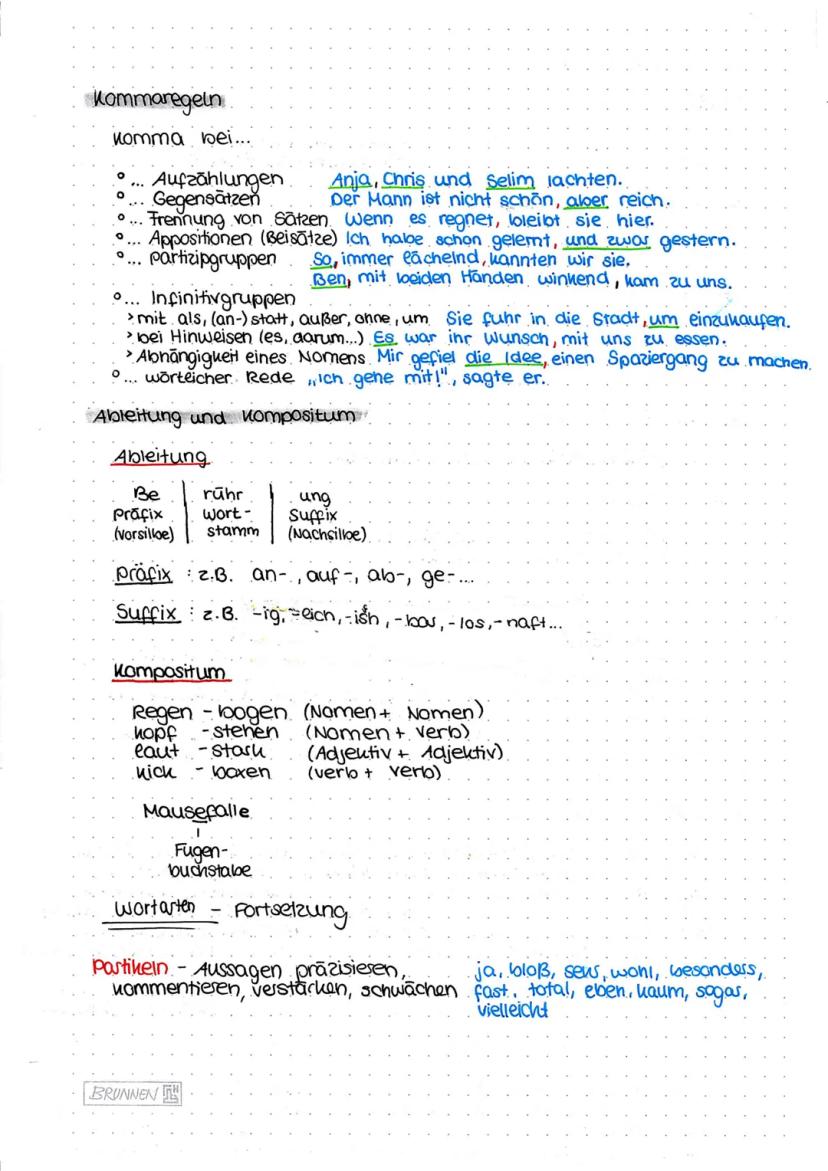 Kommaregeln
Komma bei...
° ... Aufzählungen Anja, Chris und Selim lachten.
° ... Gegensätzen Der Mann ist nicht schön, aber reich.
° ... Trennung von Sätzen Wenn es regnet, bleibt sie hier.
° ... Appositionen (Beisätze) Ich habe schon gelernt, und zwar gestern.
° ... Partizipgruppen So, immer lächelnd, kannten wir sie.
Ben, mit beiden Händen winkend, kam zu uns.
° ... Infinitivgruppen
> mit als, (an-) statt, außer, ohne, um Sie fuhr in die Stadt, um einzukaufen.
> bei Hinweisen (es, darum...) Es war ihr Wunsch, mit uns zu essen.
> Abhängigkeit eines Nomens Mir gefiel die Idee, einen Spaziergang zu machen.
° ... wörtlicher Rede „Ich gehe mit!", sagte er.
Ableitung und Kompositum
Ableitung
Be | rühr | ung
Präfix | Wort- | Suffix
(Vorsilbe) | stamm | (Nachsilbe)
Präfix : z.B. an-, auf-, ab-, ge-...
Suffix : z.B. -ig, -lich, -isch, -bar, -los, -haft...
Kompositum
Regen - bogen (Nomen + Nomen)
kopf - stehen (Nomen + Verb)
laut - stark (Adjektiv + Adjektiv)
kick - boxen (Verb + Verb)
Mausefalle
Fugen-
buchstabe
Wortarten - Fortsetzung
Partikeln - Aussagen präzisieren, ja, bloß, sehr, wohl, besonders,
kommentieren, verstärken, schwächen fast, total, eben, kaum, sogar,
vielleicht
BRUNNEN